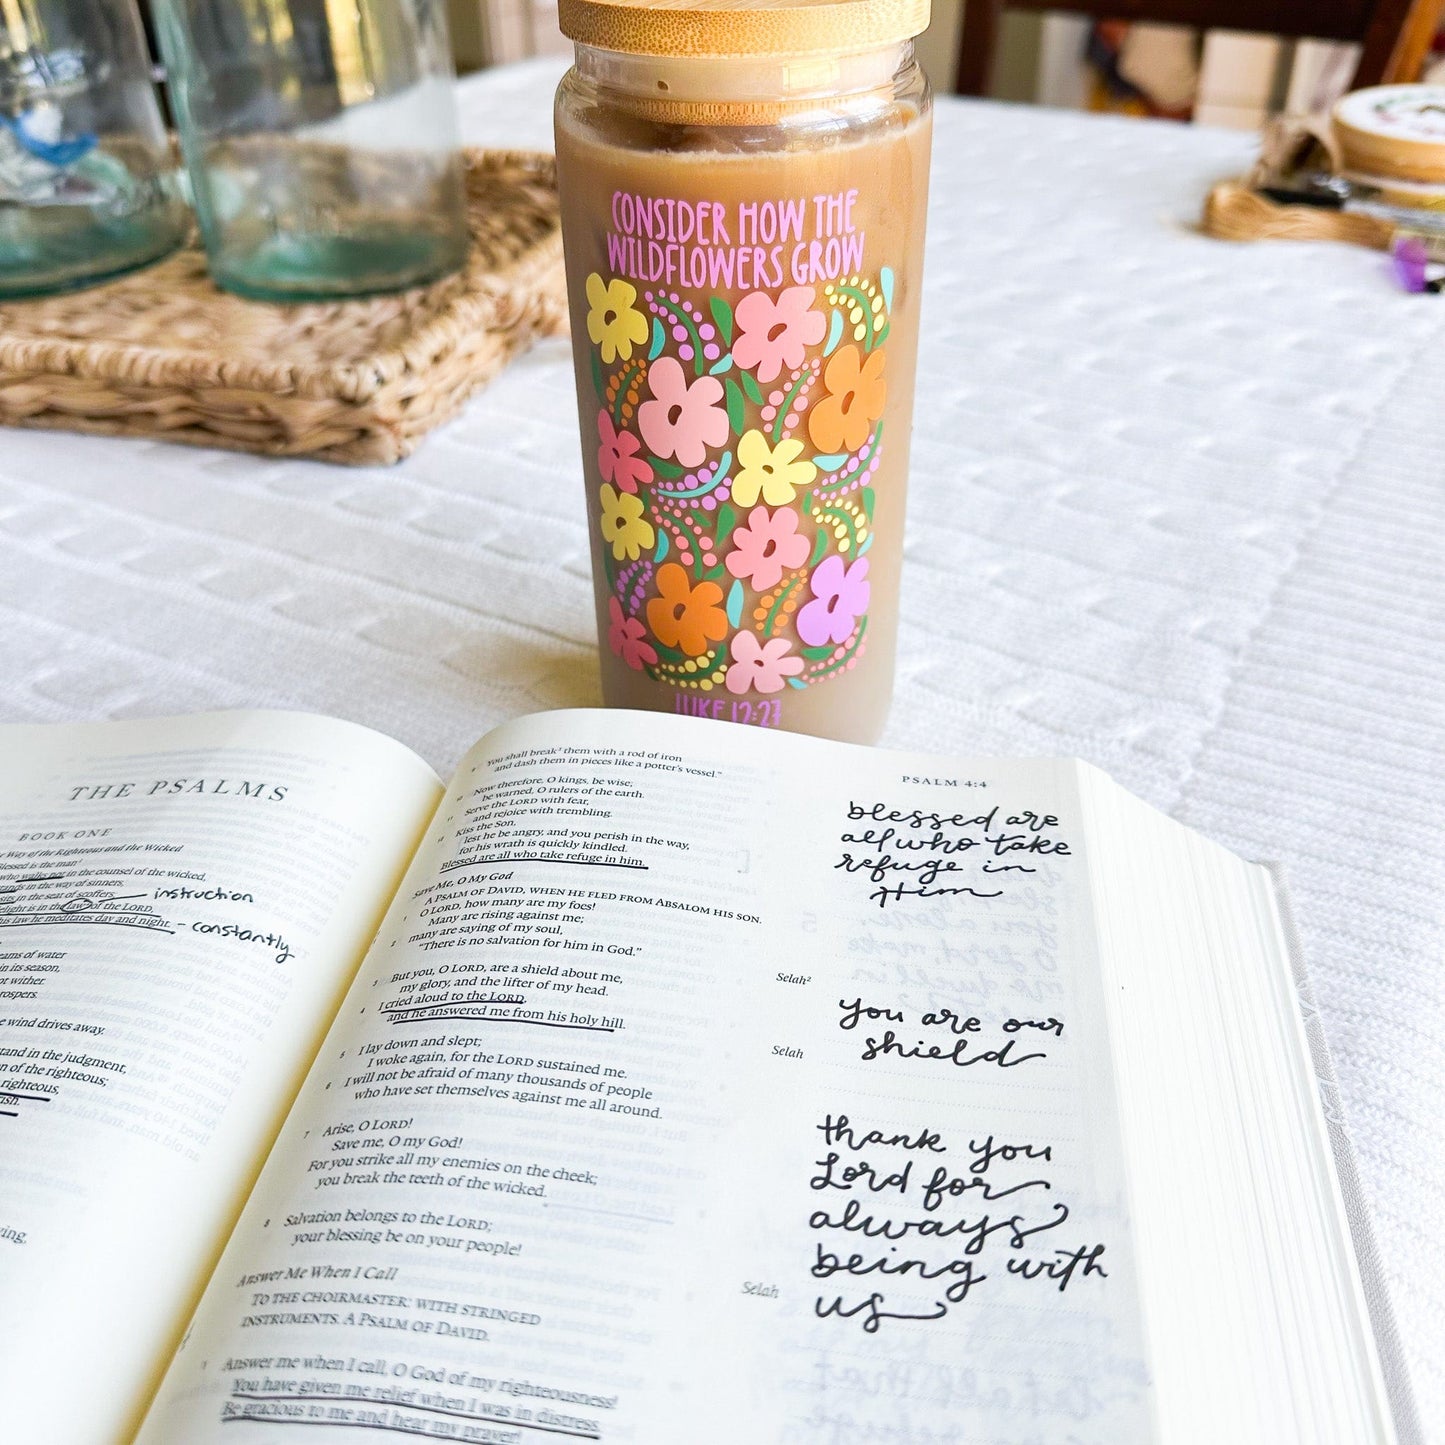 CONSIDER HOW THE
WILDFLOWERS GROW
LUKE 12:27
THE PSALMS
BOOK ONE
Way of the Righteous and the Wicked
Blessed is the man
who walks not in the counsel of the wicked,
in the way of sinners,
in the seat of scoffers;
instruction
in the law of the LORD,
his law he meditates day and night.
- constantly
of water
in its season,
wither.
wind drives away.
in the judgment,
of the righteous;
righteous,
PSALM 4:4
You shall break them with a rod of iron
and dash them in pieces like a potter's vessel."
10 Now therefore, O kings, be wise;
be warned, O rulers of the earth.
11 Serve the LORD with fear,
and rejoice with trembling.
12 Kiss the Son,
lest he be angry, and you perish in the way,
for his wrath is quickly kindled.
Blessed are all who take refuge in him.
Save Me, O My God
A PSALM OF DAVID, WHEN HE FLED FROM ABSALOM HIS SON.
1 O LORD, how many are my foes!
Many are rising against me;
2 many are saying of my soul,
"There is no salvation for him in God."
Selah²
3 But you, O LORD, are a shield about me,
my glory, and the lifter of my head.
4 I cried aloud to the LORD,
and he answered me from his holy hill.
Selah
5 I lay down and slept;
I woke again, for the LORD sustained me.
6 I will not be afraid of many thousands of people
who have set themselves against me all around.
7 Arise, O LORD!
Save me, O my God!
For you strike all my enemies on the cheek;
you break the teeth of the wicked.
8 Salvation belongs to the LORD;
your blessing be on your people!
Selah
Answer Me When I Call
TO THE CHOIRMASTER: WITH STRINGED
INSTRUMENTS. A PSALM OF DAVID.
1 Answer me when I call, O God of my righteousness!
You have given me relief when I was in distress.
Be gracious to me and hear my prayer!
blessed are
all who take
refuge in
Him
you are our
shield
thank you
Lord for
always
being with
us